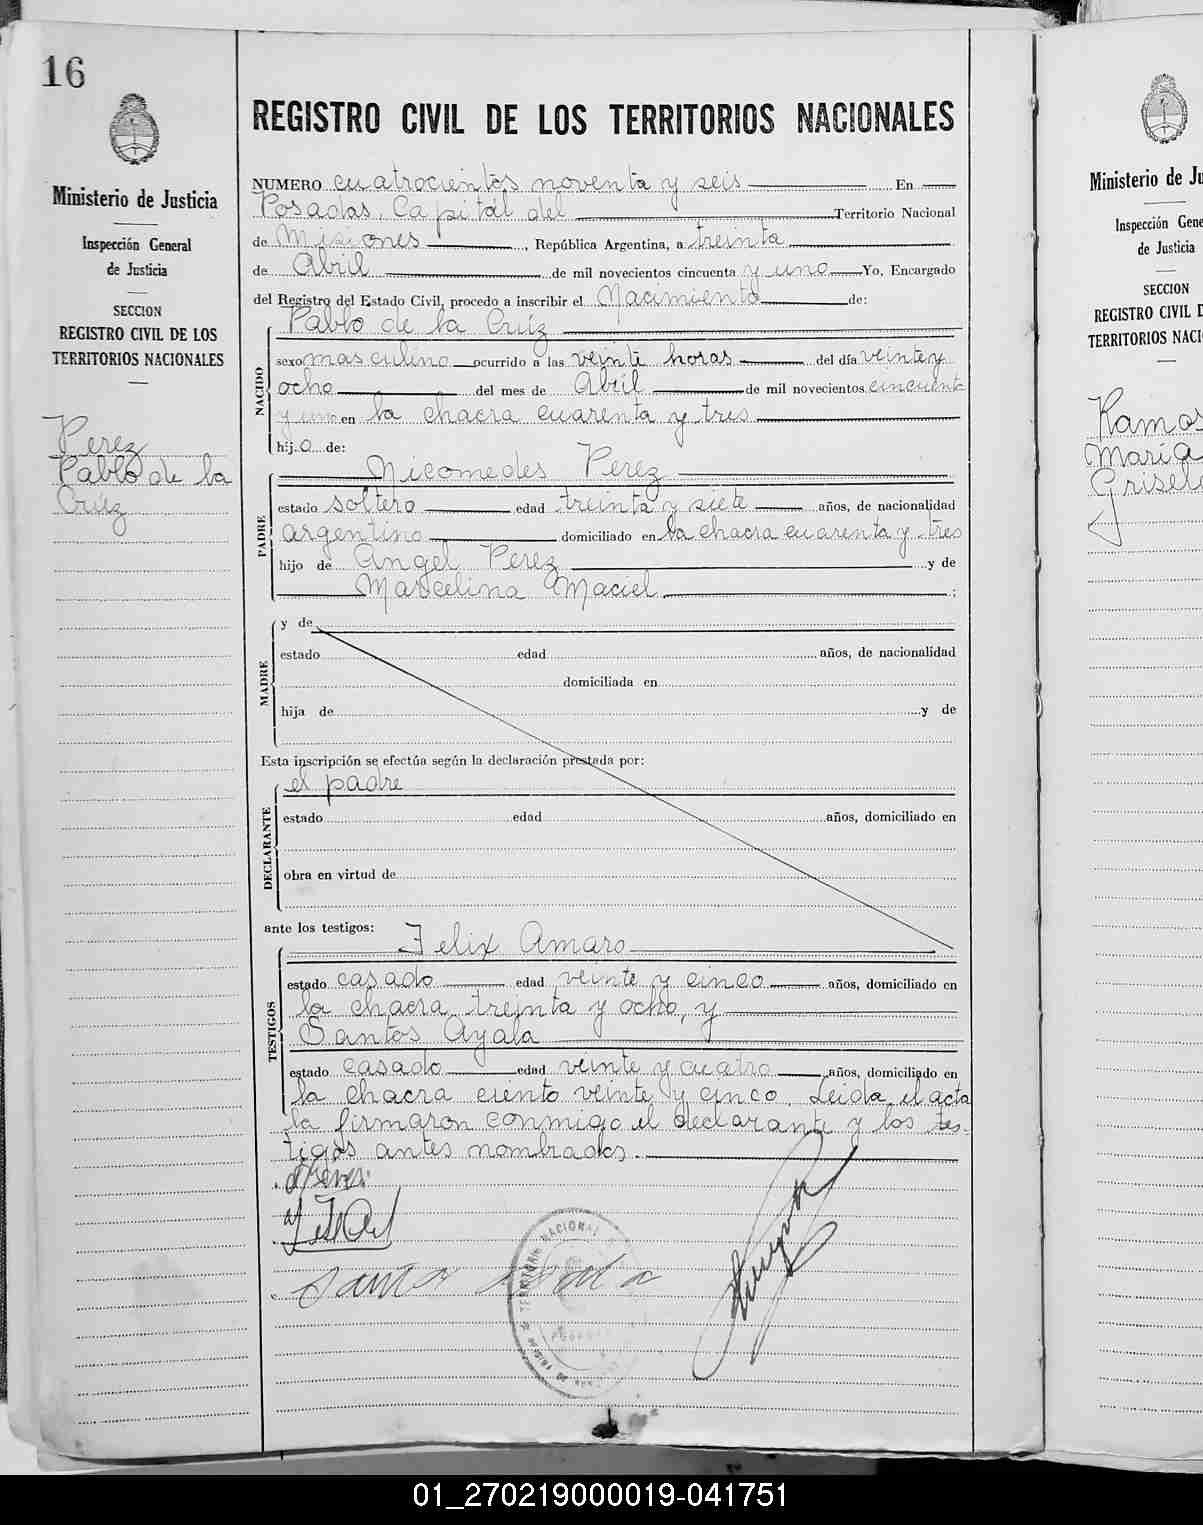 16
Ministerio de Justicia
Inspección General
de Justicia
SECCION
REGISTRO CIVIL DE LOS
TERRITORIOS NACIONALES
Perez
Pablo de la
Crúz
REGISTRO CIVIL DE LOS TERRITORIOS NACIONALES
NUMERO cuatrocientos noventa y seis En
Posadas, Capitál del Territorio Nacional
de Misiones, República Argentina, a treinta
de Abril de mil novecientos cincuenta y uno Yo, Encargado
del Registro del Estado Civil, procedo a inscribir el Nacimiento de:
NACIDO
Pablo de la Crúz
sexo masculino ocurrido a las veinte horas del día veinte y
ocho del mes de Abril de mil novecientos cincuent
y uno en la chacra cuarenta y tres
hijo de:
PADRE
Nicomedes Perez
estado soltero edad treinta y siete años, de nacionalidad
argentino domiciliado en la chacra cuarenta y tres
hijo de Angel Perez y de
Marcelina Maciel ;
MADRE
y de
estado edad años, de nacionalidad
domiciliada en
hija de y de
Esta inscripción se efectúa según la declaración prestada por:
DECLARANTE
el padre
estado edad años, domiciliado en
obra en virtud de
ante los testigos:
TESTIGOS
Felix Amaro
estado casado edad veinte y cinco años, domiciliado en
la chacra treinta y ocho, y
Santos Ayala
estado casado edad veinte y cuatro años, domiciliado en
la chacra ciento veinte y cinco. Leida el acta
la firmaron conmigo el declarante y los tes-
tigos antes nombrados.
Ministerio de Ju
Inspección Gene
de Justicia
SECCION
REGISTRO CIVIL D
TERRITORIOS NACI
Ramos
Maria
Grisel
01_270219000019-041751